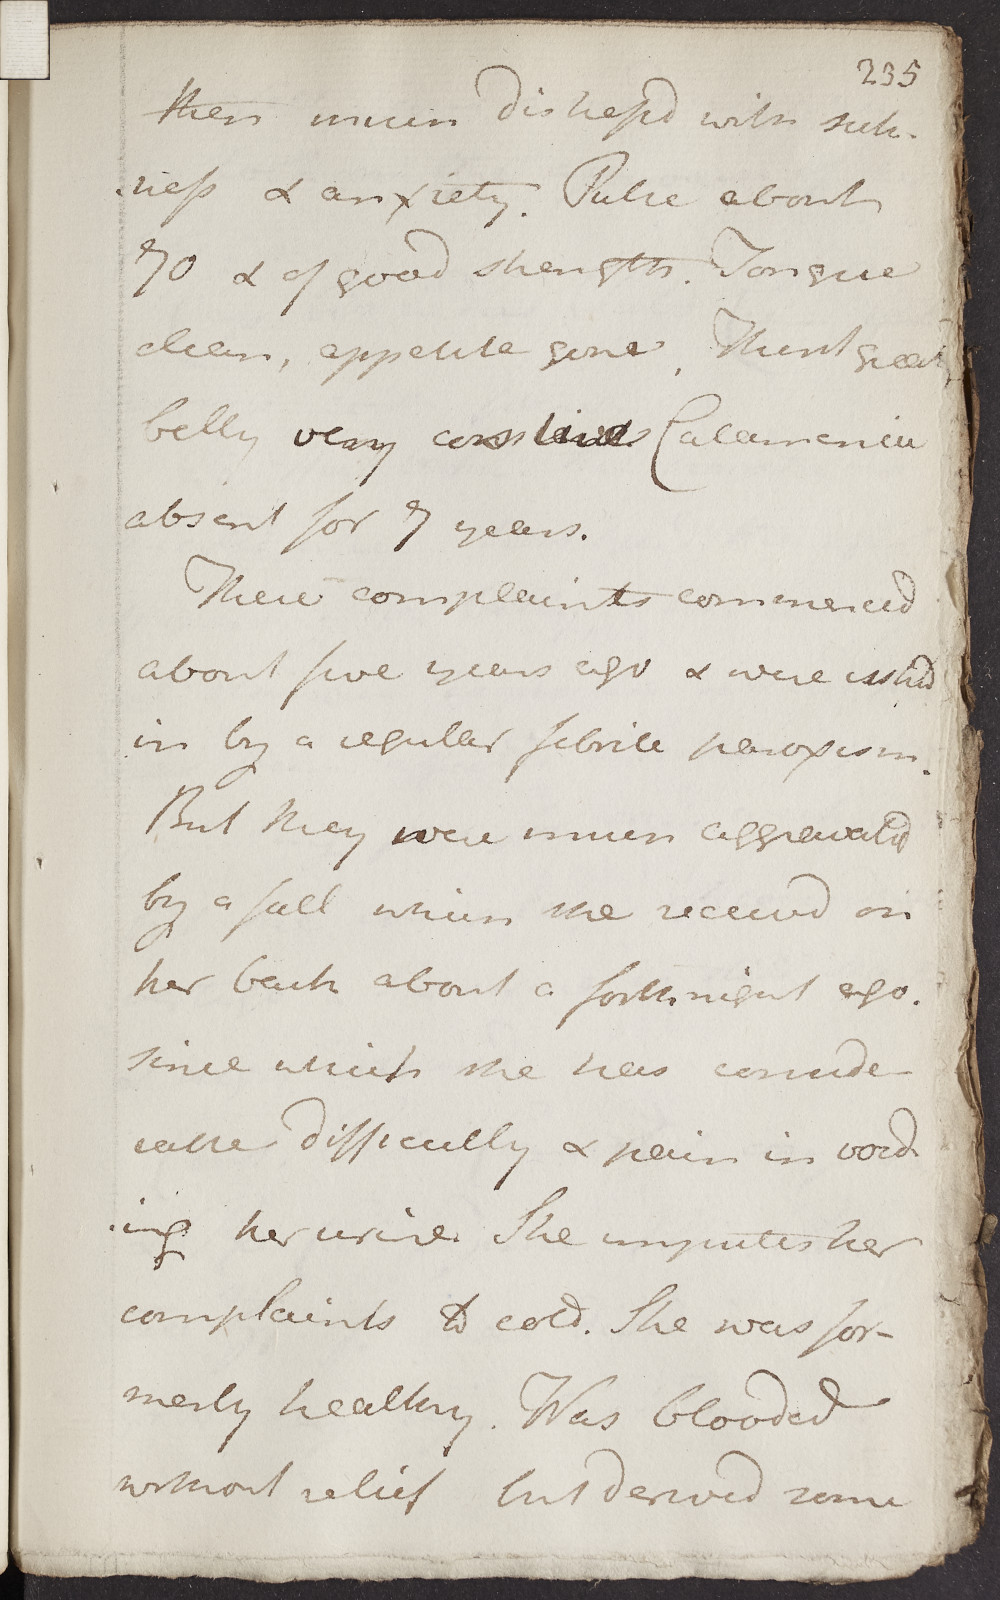 235
then much distressd with sick-
-ness & anxiety. Pulse about
70 & of good strength. Tongue
clean, appetite gone. Thirst great
belly very costive Catamenia
absent for 7 years.
These complaints commenced
about five years ago & were ushd
in by a regular febrile paroxism.
But they were much aggravated
by a fall which she received on
her back about a fortnight ago.
since which she has conside
rable difficulty & pain in void
-ing her urine. She imputes her
complaints to cold. She was for-
merly healthy. Was blooded
without relief but derived some